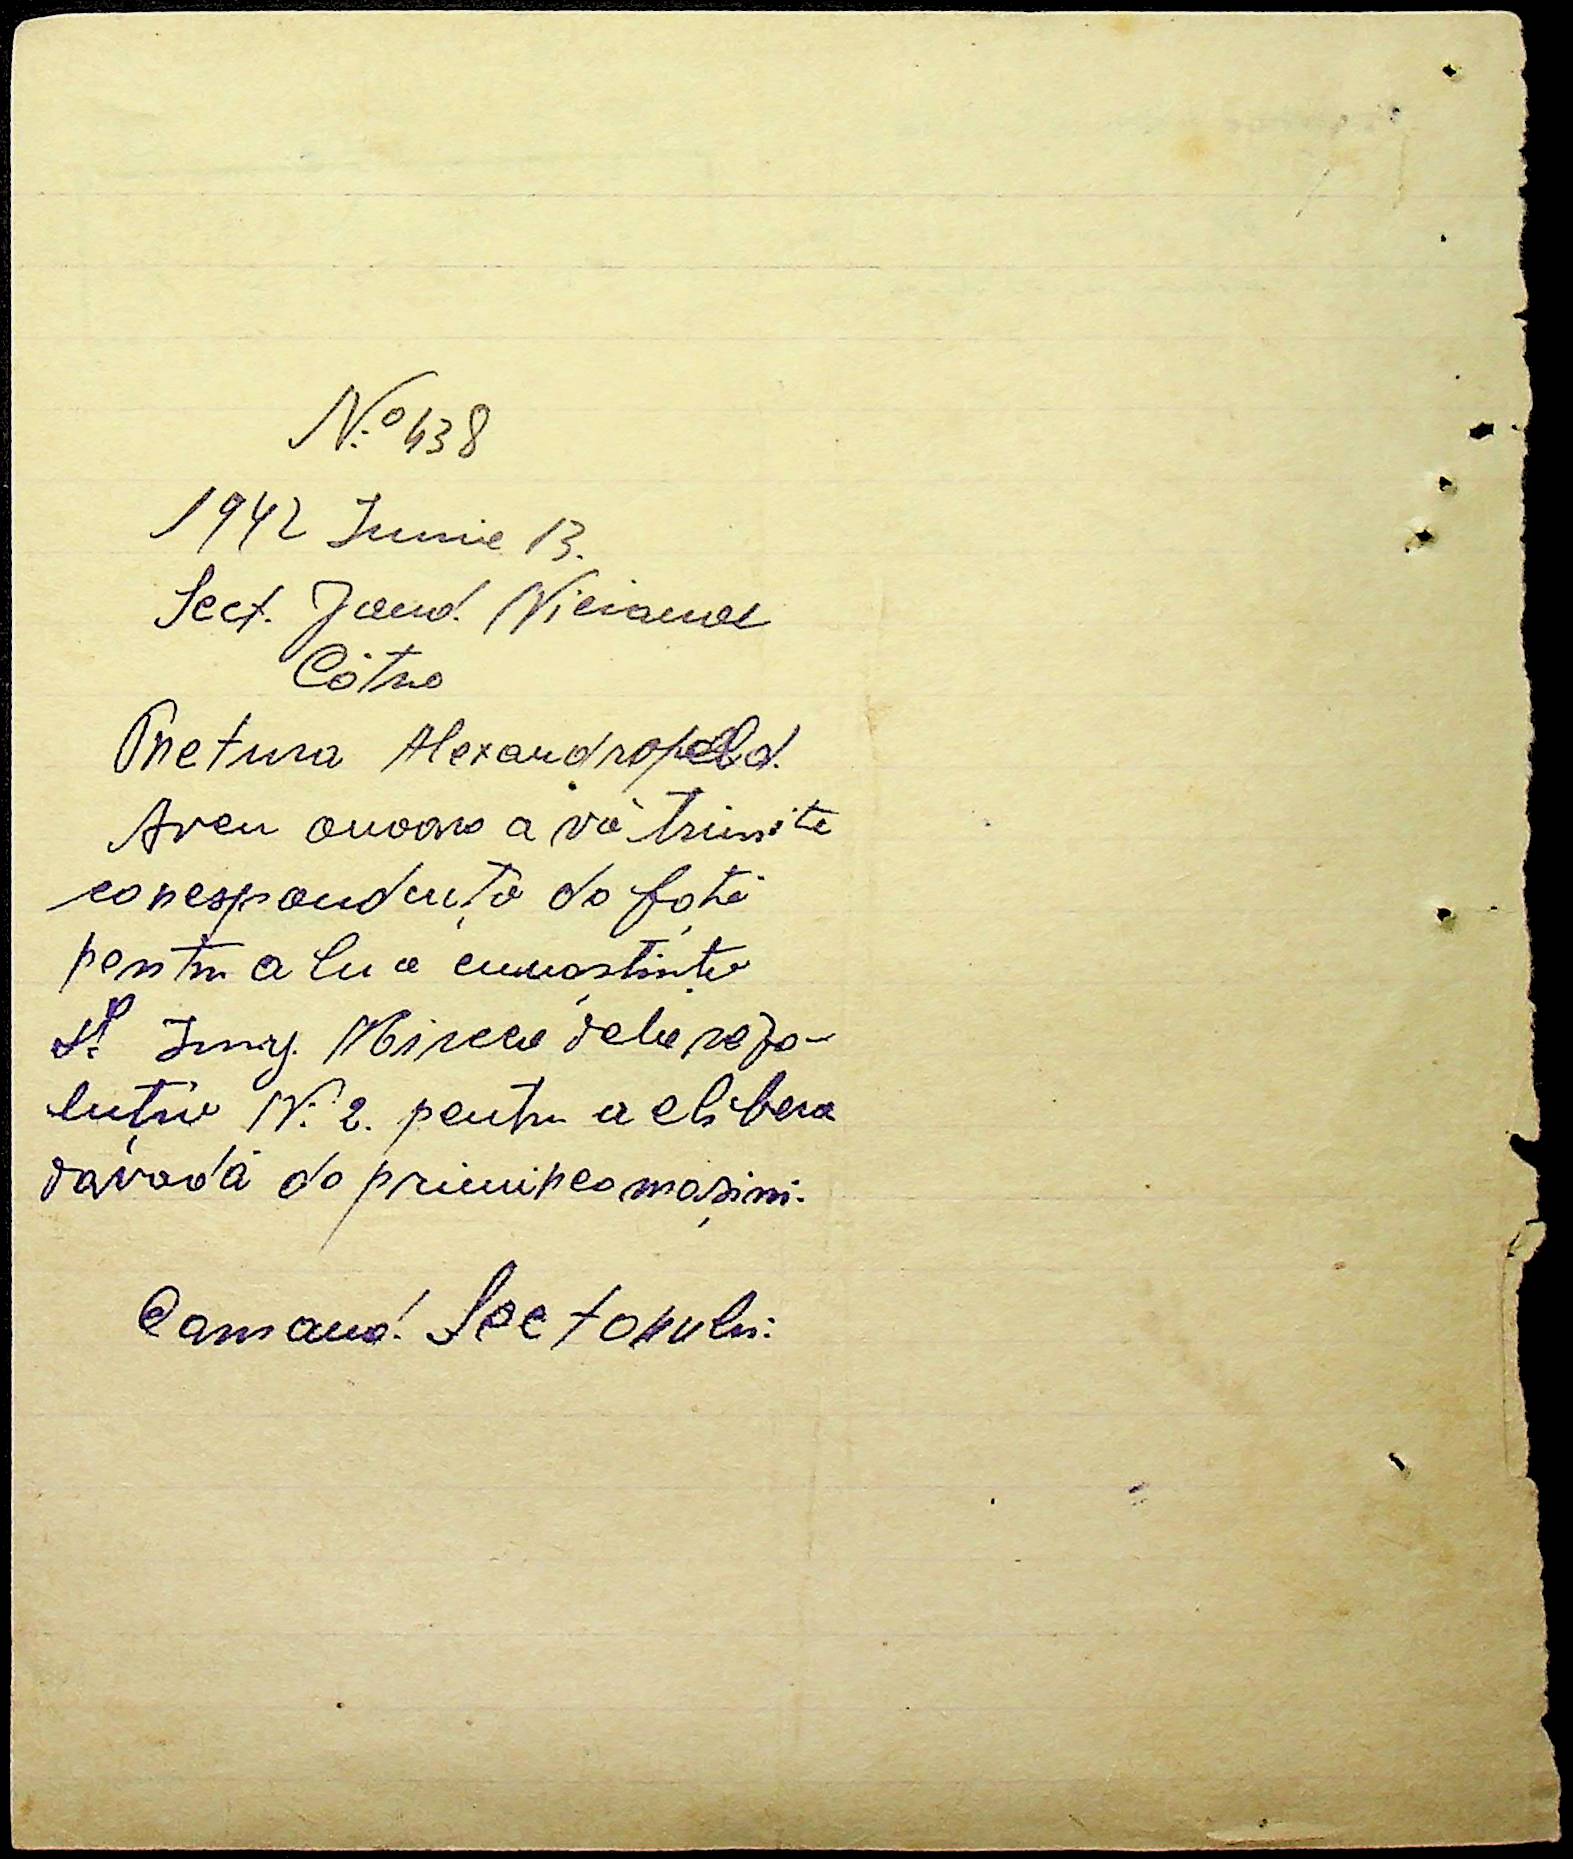 No 438
1942 Iunie 13.
Sect. Jand.
Către
Pretura Alexandrofeld.
Avem onoare a vă trimite
corespondența de față
pentru a lua cunoștință
Dl Ing. Mircea dela rezo-
luție N: 2. pentru a elibera
dovadă de primirea mașini.
Comand. Sectorului: